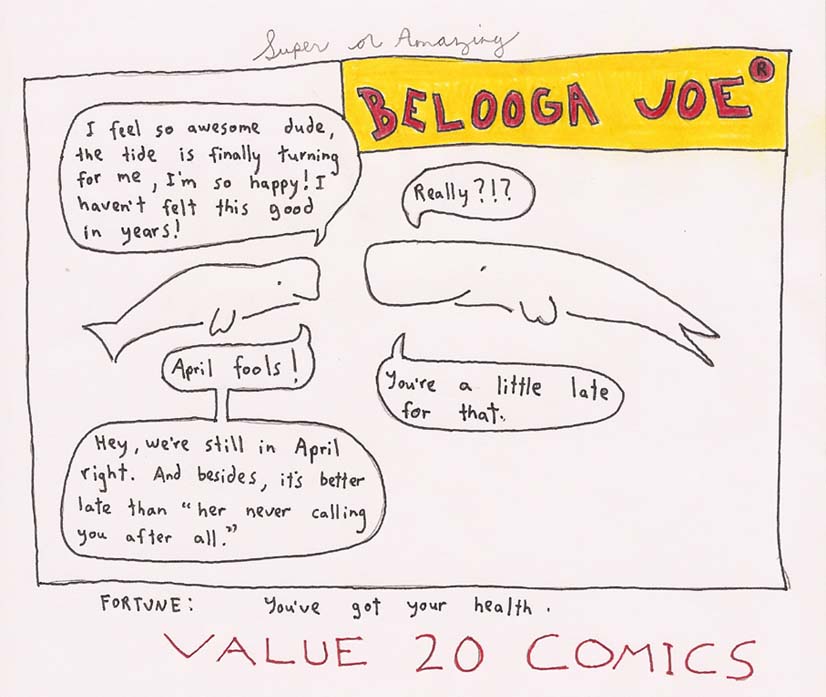 Super or Amazing
BELOOGA JOE ®
I feel so awesome dude,
the tide is finally turning
for me, I'm so happy! I
haven't felt this good
in years!
Really?!?
April fools!
You're a little late
for that.
Hey, we're still in April
right. And besides, it's better
late than "her never calling
you after all."
FORTUNE: You've got your health.
VALUE 20 COMICS